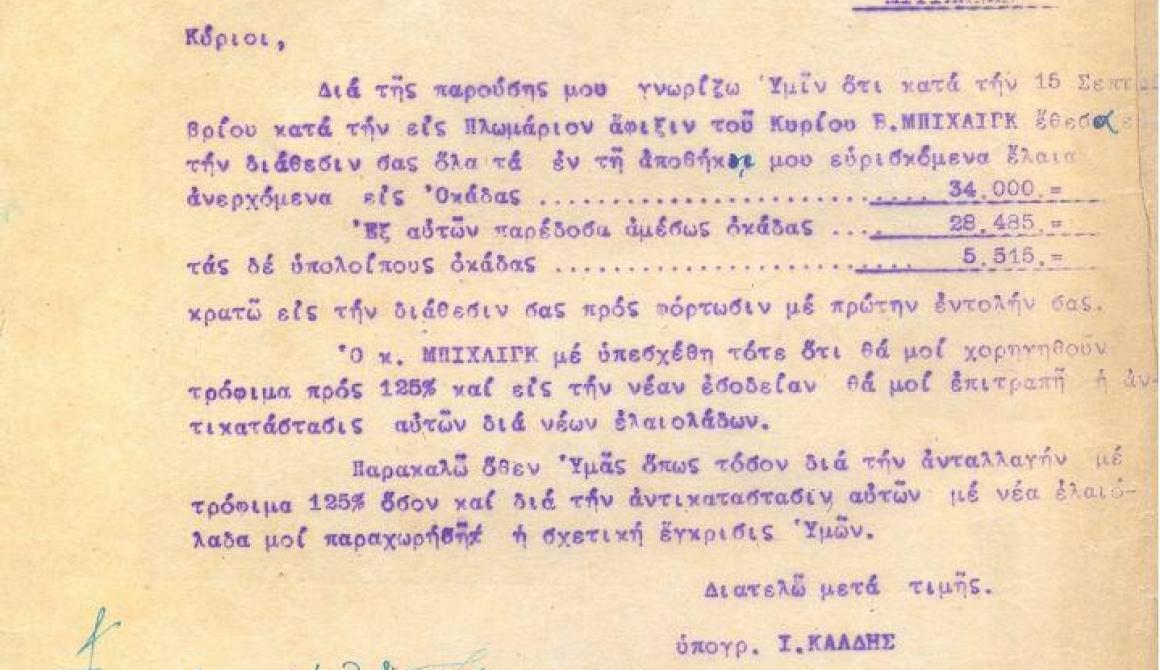 Κύριοι,
Διά τῆς παρούσης μου γνωρίζω Ὑμῖν ὅτι κατά τήν 15 Σεπτ
βρίου κατά τήν εἰς Πλωμάριον ἄφιξιν τοῦ Κυρίου Β.ΜΠΙΧΛΙΓΚ ἔθεσα εἰ
τήν διάθεσιν σας ὅλα τά ἐν τῇ ἀποθήκῃ μου εὑρισκόμενα ἔλαια
ἀνερχόμενα εἰς Ὀκάδας ............................ 34.000.=
Ἐξ αὐτῶν παρέδοσα ἀμέσως ὀκάδας .... 28.485.=
τάς δέ ὑπολοίπους ὀκάδας .......................... 5.515.=
κρατῶ εἰς τήν διάθεσιν σας πρός φόρτωσιν μέ πρώτην ἐντολήν σας.
Ὁ κ. ΜΠΙΧΛΙΓΚ μέ ὑπεσχέθη τότε ὅτι θά μοί χορηγηθοῦν
τρόφιμα πρός 125% καί εἰς τήν νέαν ἐσοδείαν θά μοί ἐπιτραπῇ ἡ ἀν-
τικατάστασις αὐτῶν διά νέων ἐλαιολάδων.
Παρακαλῶ ὅθεν Ὑμᾶς ὅπως τόσον διά τήν ἀνταλλαγήν μέ
τρόφιμα 125% ὅσον καί διά τήν ἀντικαταστασιν αὐτῶν μέ νέα ἐλαιό-
λαδα μοί παραχωρήσῃ ἡ σχετική ἔγκρισις Ὑμῶν.
Διατελῶ μετά τιμῆς.
ὑπογρ. Ι.ΚΑΛΔΗΣ